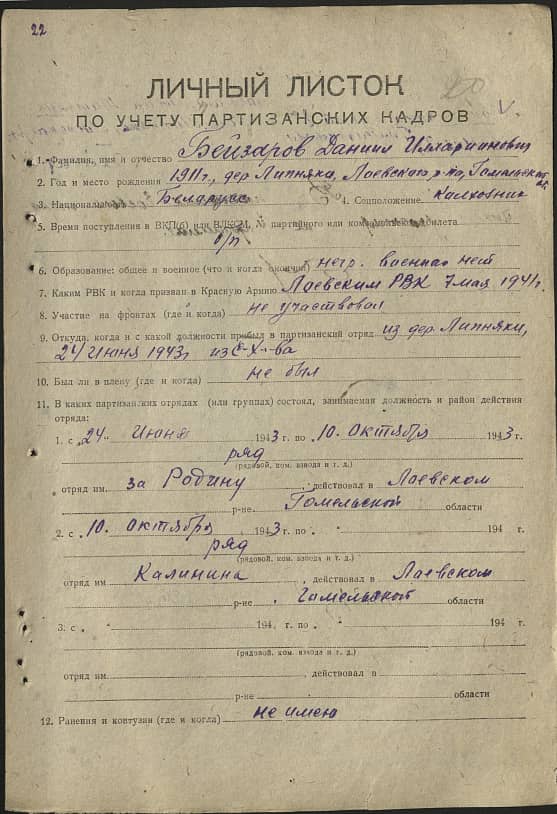 22
20
V
ЛИЧНЫЙ ЛИСТОК
ПО УЧЕТУ ПАРТИЗАНСКИХ КАДРОВ
1. Фамилия, имя и отчество Бейзаров Даниил Иллариянович
2. Год и место рождения 1911г., дер. Липняки, Лоевского р-на, Гомельской
3. Национальность Беларусс 4. Соцположение колхозник
5. Время поступления в ВКП(б) или ВЛКСМ, № партийного или комсомольского билета
б/п
6. Образование: общее и военное (что и когда окончил) негр. военная нет
7. Каким РВК и когда призван в Красную Армию Лоевским РВК 7 мая 1941г.
8. Участие на фронтах (где и когда) не участвовал
9. Откуда, когда и с какой должности прибыл в партизанский отряд из дер. Липняки,
24 июня 1943г из с-х-ва
10. Был ли в плену (где и когда) не был
11. В каких партизанских отрядах (или группах) состоял, занимаемая должность и район действия
отряда:
1. с „24" Июня 1943 г. по „10. Октября 1943 г.
ряд
(рядовой, ком. взвода и т. д.)
отряд им. за Родину, действовал в Лоевском
р-не Гомельской области
2. с „10. Октября 1943 г. по „ " 194 г.
ряд
(рядовой, ком. взвода и т. д.)
отряд им Калинина, действовал в Лоевском
р-не Гомельской области
3. с „ " 194 г. по „ " 194 г.
(рядовой, ком. взвода и т. д.)
отряд им. , действовал в
р-не области
12. Ранения и контузии (где и когда) не имею